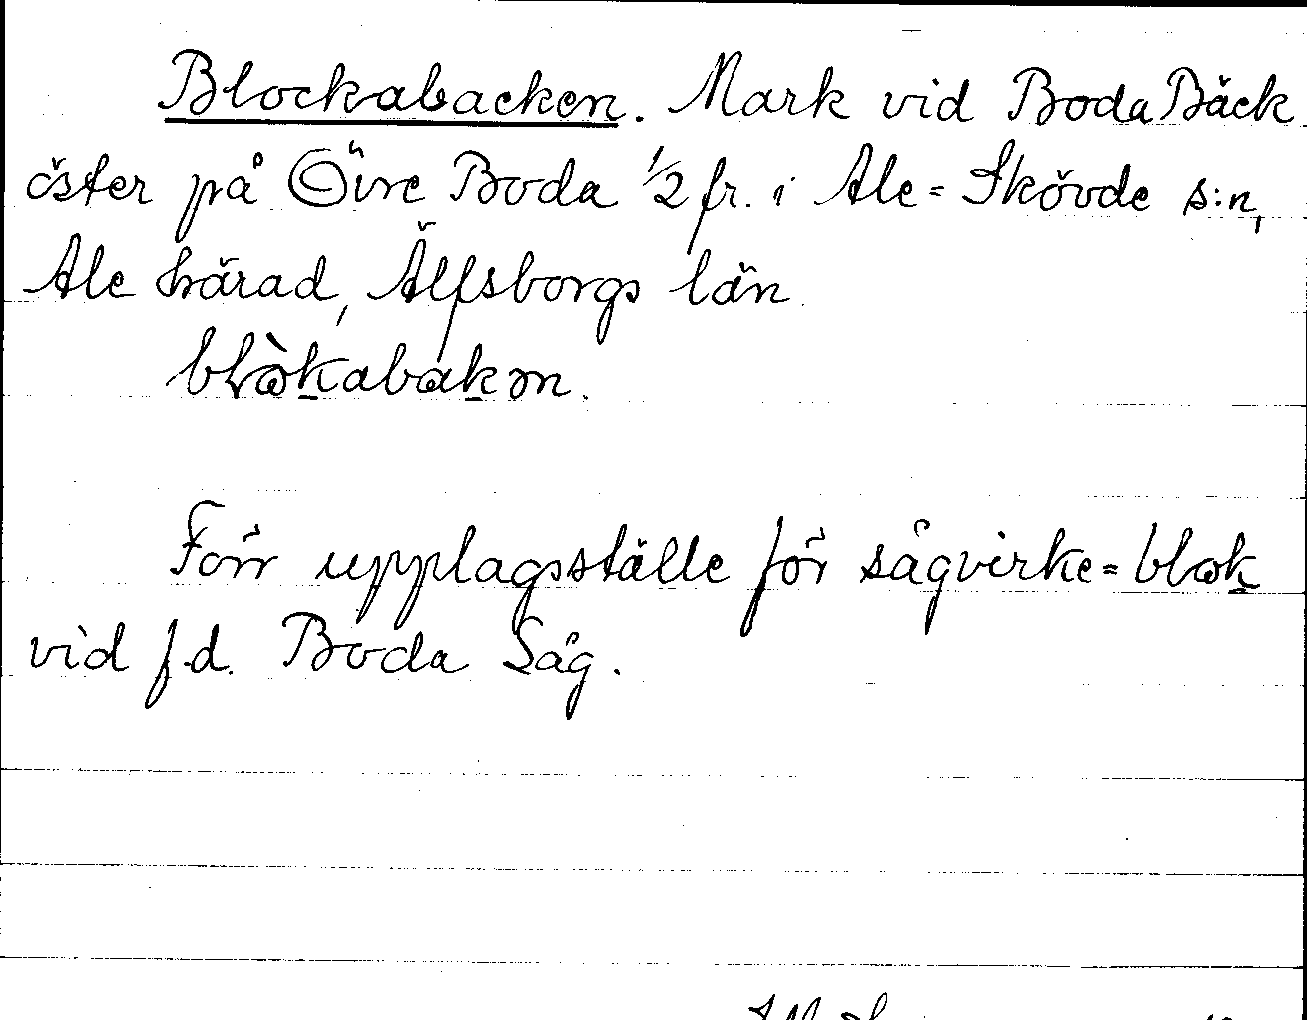 Blockabacken. Mark vid Boda Bäck
öster på Övre Boda 1/2 fr. i Ale=Skövde s:n,
Ale härad, Älfsborgs län.
blòkabakən.
Förr upplagsställe för sågvirke=blok
vid f.d. Boda Såg.